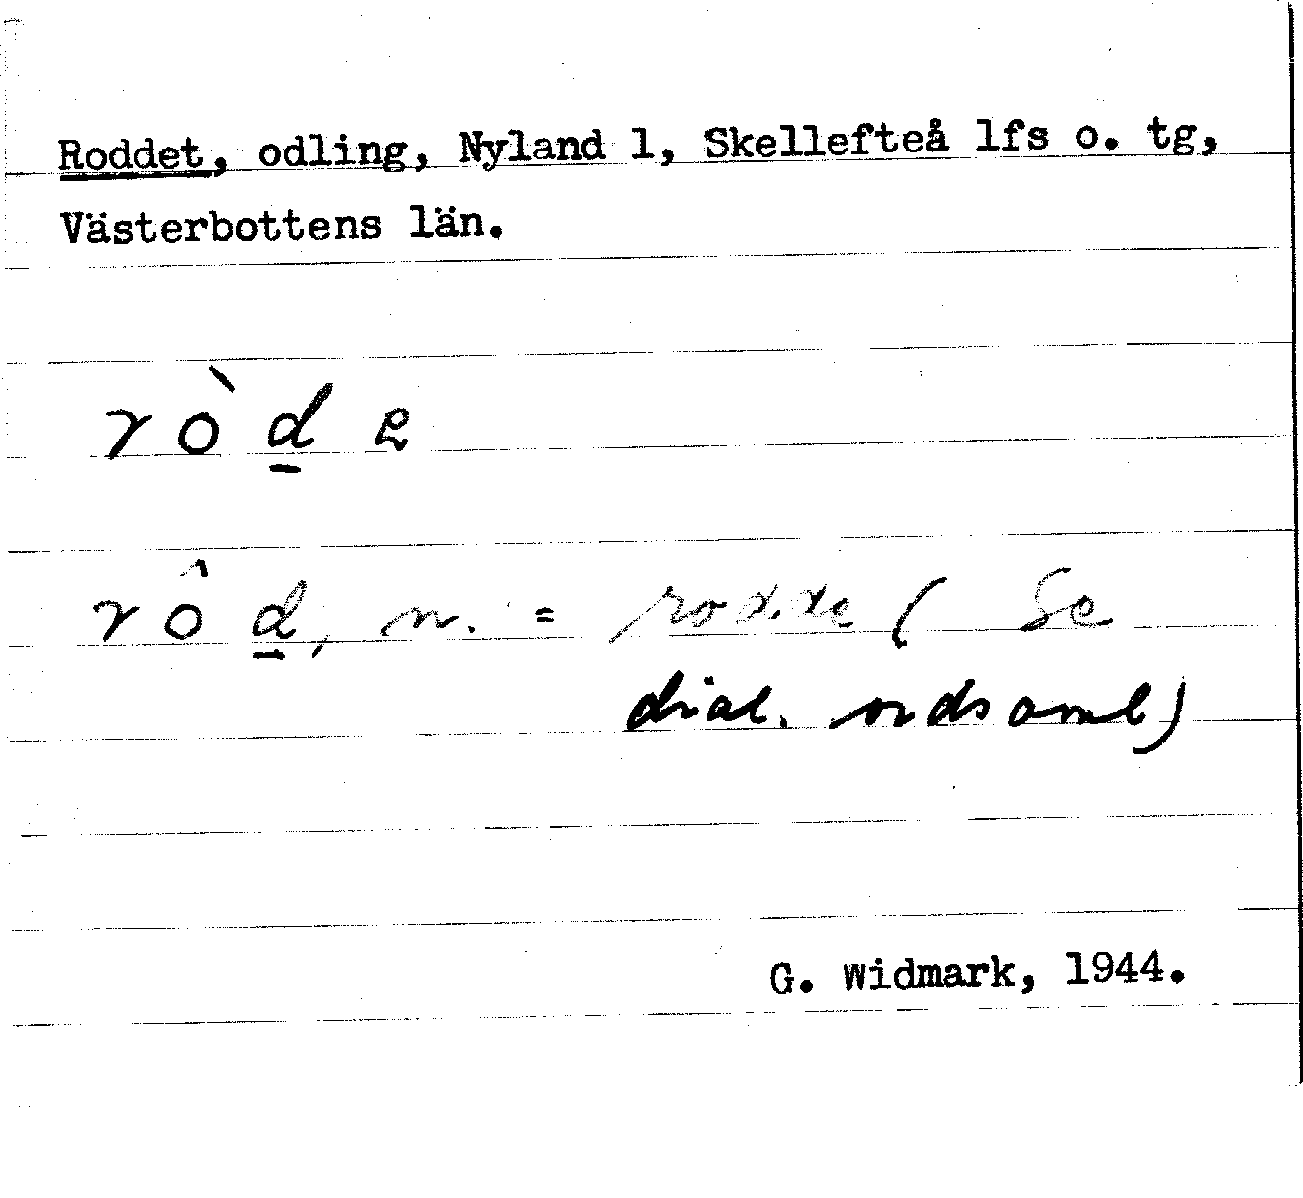 Roddet, odling, Nyland 1, Skellefteå lfs o. tg,
Västerbottens län.
rò d̲ e
rô d̲, n. = (Se
dial. ordsaml)
G. Widmark, 1944.